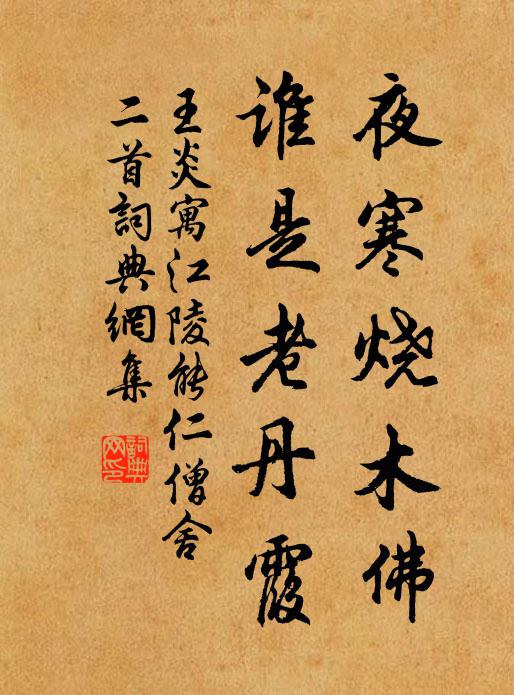 夜寒烧木佛
谁是老丹霞
王炎寓江陵能仁僧舍
二首詞典網集
詞典网印